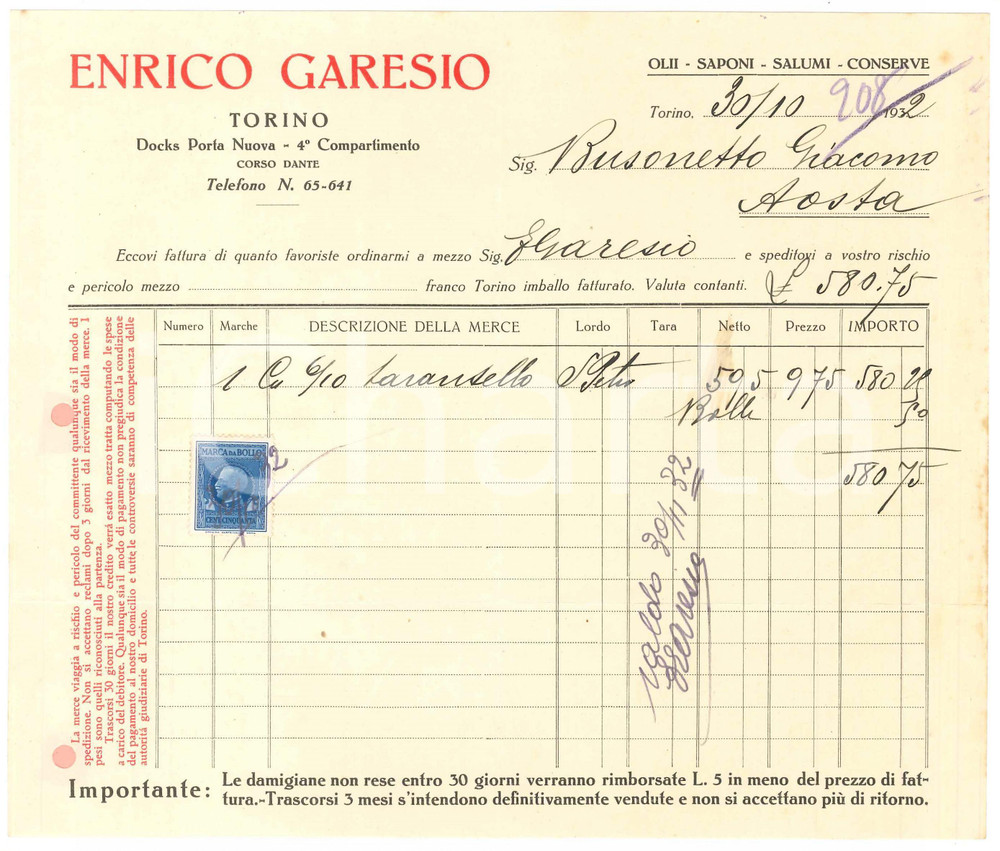 ENRICO GARESIO
TORINO
Docks Porta Nuova - 4º Compartimento
CORSO DANTE
Telefono N. 65-641
OLII - SAPONI - SALUMI - CONSERVE
908
Torino, 30/10 1932
Sig. Busonetto Giacomo
Aosta
Eccovi fattura di quanto favoriste ordinarmi a mezzo Sig. EGaresio e speditovi a vostro rischio
e pericolo mezzo franco Torino imballo fatturato. Valuta contanti. £ 580.75
Numero Marche DESCRIZIONE DELLA MERCE Lordo Tara Netto Prezzo IMPORTO
1 Cu 6/10 tarantello 59,5 975 580 25
Bolli 50
580 75
MARCA DA BOLLO
CENT. CINQUANTA
32
Saldo 30/11 32
Garesio
La merce viaggia a rischio e pericolo del committente qualunque sia il modo di
spedizione. Non si accettano reclami dopo 3 giorni dal ricevimento della merce. I
pesi sono quelli riconosciuti alla partenza.
Trascorsi 30 giorni il nostro credito verrà esatto mezzo tratta computando le spese
a carico del debitore. Qualunque sia il modo di pagamento non pregiudica la condizione
del pagamento al nostro domicilio e tutte le controversie saranno di competenza delle
autorità giudiziarie di Torino.
Importante: Le damigiane non rese entro 30 giorni verranno rimborsate L. 5 in meno del prezzo di fat-
tura.-Trascorsi 3 mesi s'intendono definitivamente vendute e non si accettano più di ritorno.